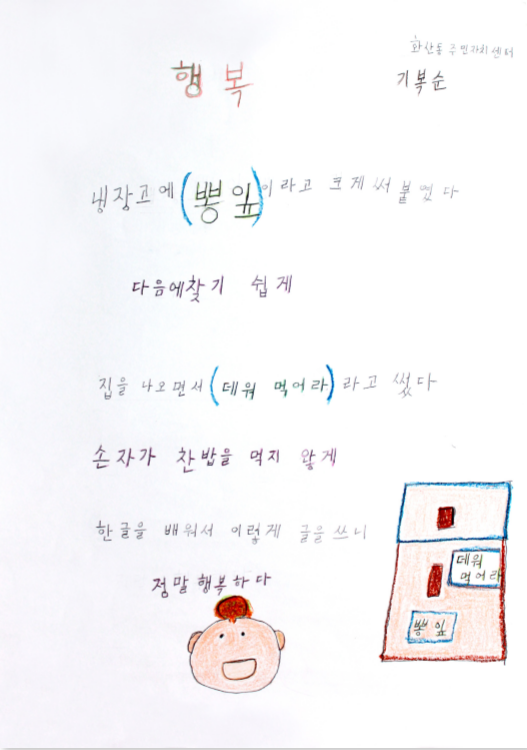 화산동 주민자치센터
행복
기복순
냉장고에 (뽕잎)이라고 크게 써 붙였다
다음에 찾기 쉽게
집을 나오면서 (데워 먹어라)라고 썼다
손자가 찬밥을 먹지 않게
한글을 배워서 이렇게 글을 쓰니
정말 행복하다
데워
먹어라
뽕잎